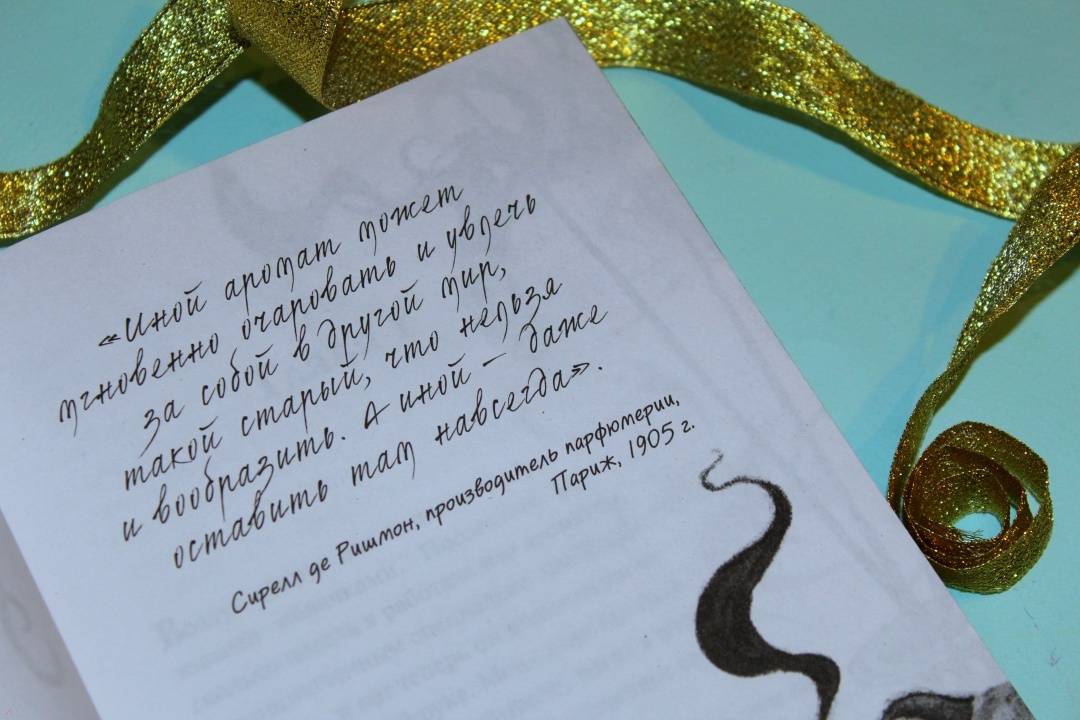 «Иной аромат может
мгновенно очаровать и увлечь
за собой в другой мир,
такой старый, что нельзя
и вообразить. А иной – даже
оставить там навсегда».
Сирелл де Ришмон, производитель парфюмерии,
Париж, 1905 г.